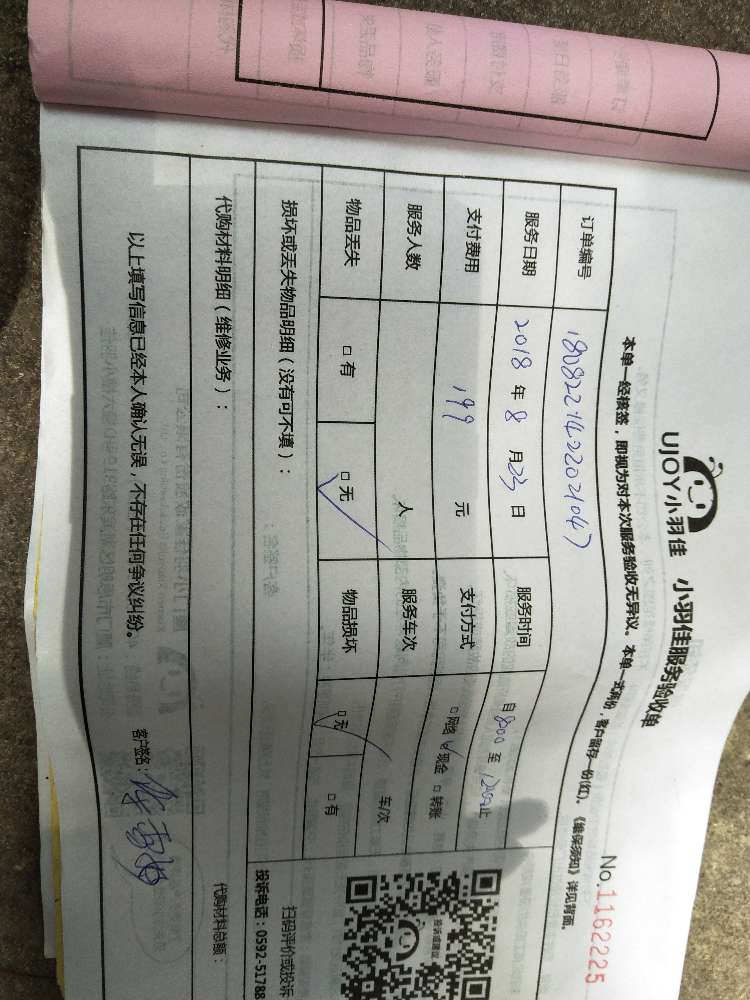 UJOY小羽佳 小羽佳服务验收单
No.1162225
本单一经核签，即视为对本次服务验收无异议。本单一式两份，客户留存一份(红)。《维保须知》详见背面。
订单编号 1808221422021047
服务日期 2018 年 8 月 23 日 服务时间 自 8:00 至 12:00 止
支付费用 199 元 支付方式 □ 网络 ☑ 现金 □ 转账
服务人数 人 服务车次 车/次
物品丢失 □ 有 □ 无 ✓ 物品损坏 □ 无 ✓ □ 有
损坏或丢失物品明细（没有可不填）：
代购材料明细（维修业务）：
代购材料总额：
投诉或建议
UJOY
扫码评价或投诉
投诉电话：0592-51788
以上填写信息已经本人确认无误，不存在任何争议纠纷。
客户签名：